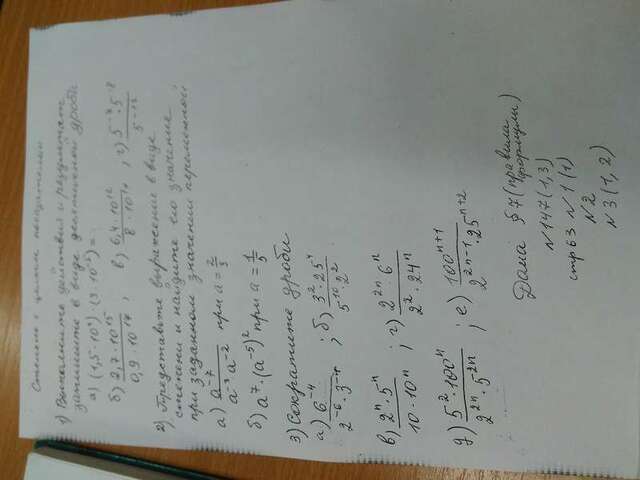 Степень с целым показателем
1) Выполните действия и результат
запишите в виде десятичной дроби
а) (1,5·10⁴)·(3·10⁻³) =
б) 2,7·10¹⁵ / 0,9·10¹⁴ ; в) 6,4·10¹² / 8·10¹⁴ ; г) 5⁻⁷·5⁻⁸ / 5⁻¹²
2) Представьте выражение в виде
степени и найдите его значение
при заданном значении переменной
а) a⁻⁷ / a⁻³a⁻² при a = 2/3
б) a⁷·(a⁻⁵)² при a = 1/5
3) Сократите дроби
а) 6⁻⁴ / 2⁻⁶·3⁻⁴ ; б) 3²·25⁴ / 5¹⁰·2²
в) 2ⁿ·5ⁿ / 10·10ⁿ ; г) 2²ⁿ·6ⁿ / 2²·24ⁿ
д) 5²·100ⁿ / 2²ⁿ·5²ⁿ ; е) 100ⁿ⁺¹ / 2²ⁿ⁻¹·25ⁿ⁺²
Дома §7 (правила формулы)
№147 (1,3)
стр 63 №1 (1)
№2
№3 (1, 2)